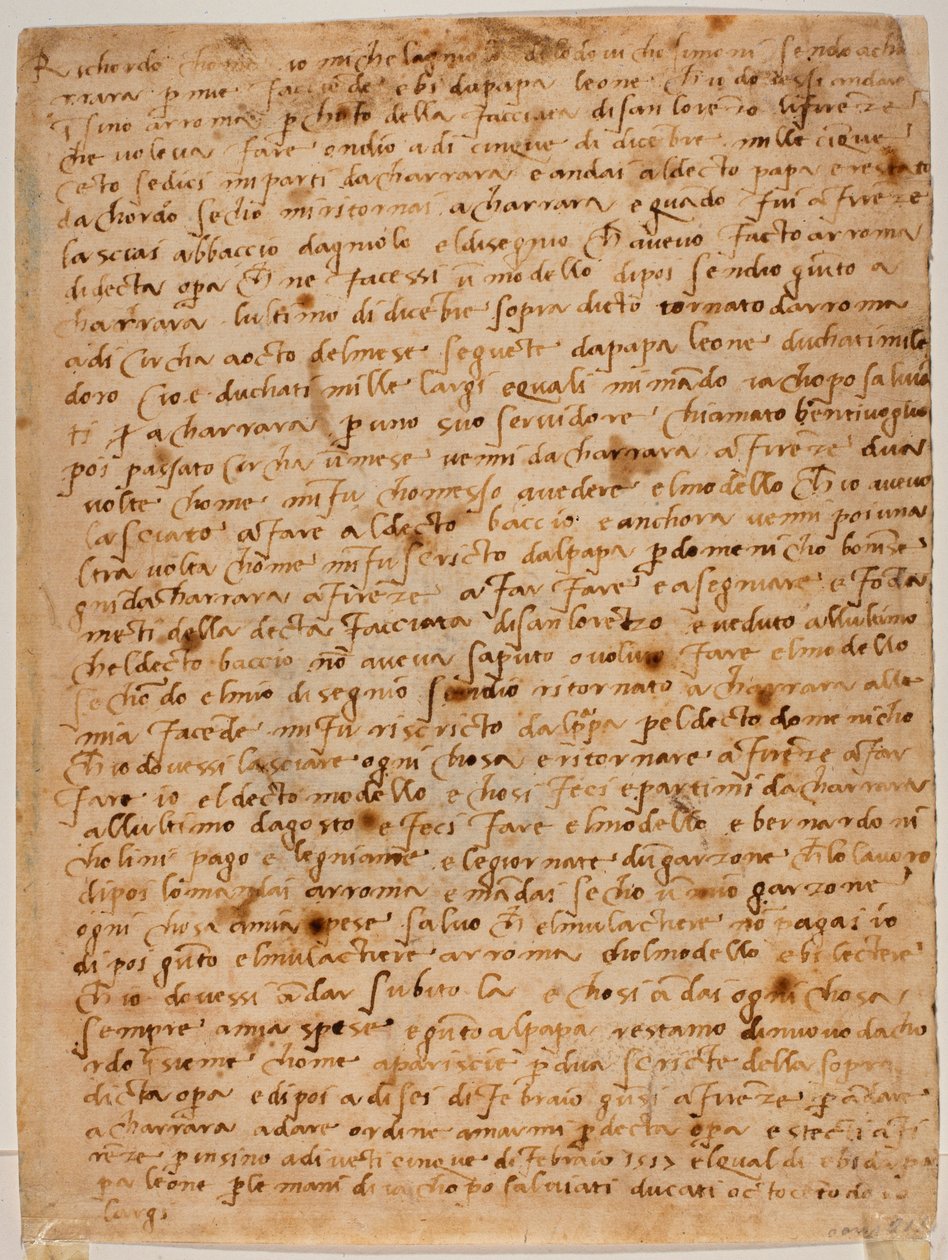 Richordo chome io michelagniolo dilodovicho simoni sendo acha
rrara p mie facciēde ebi dapapa leone ch'i' dovessi andare
ī sino arroma p chōto della facciata disan lorēzo difirēze
che voleva fare ondio adi cinque di dicēbre mille cīque
cēto sedici mi parti da charrara e andai aldecto papa e restato
da chordo secho mi ritornai a charrara e quādo fui a firēze
lasciai abbaccio dagniolo eldisegnio ch avevo facto arroma
di decta opa ch ne facessi ū modello dipoi sendio giūto a
charrara lultimo di dicēbre sopra dicto tornato darroma
adi circha aocto delmese seguēte dapapa leone duchati mile
doro cioe duchati mille largi e quali mi mādo iachopo salvia
ti p a charrara p uno suo servidore chiamato bentivoglio
poi passato circha ū mese venni da charrara a firēze dua
volte chome mi fu chomesso avedere elmodello ch io avevo
lasciato a fare aldecto baccio e anchora venni poi una
ltra volta chome mi fu scricto dalpapa p domenicho boninse
gni da charrara a firēze a far fare e a segniare e fōda
mēti della decta facciata disan lorēzo e veduto allultimo
cheldecto baccio nō aveva saputo o voluto fare elmodello
sechōdo elmio disegnio sendio ritornato a charrara alle
mia facēde mi fu riscricto dalpapa peldecto domenicho
ch io dovessi lasciare ogni chosa e ritornare a firēze a far
fare io eldecto modello e chosi feci e partimi da charrara
allultimo dagosto e feci fare elmodello e bernardo ni
cholini pago e legniame e le giornate dū garzone ch lo lavoro
dipoi lo mandai arroma e mādai secho ū mio garzone
ogni chosa amia spese salvo ch elmulactiere nō pagai io
di poi giūto elmulactiere arroma cholmodello ebi lectere
ch io dovessi ādar subito la e chosi ādai ogni chosa
sempre amia spese e giūto alpapa restamo dinuovo dacho
rdo īsieme chome apariscie p dua scricte della sopra
dicta opa e dipoi adi sei di febraio giūsi a firēze p ādare
a charrara a dare ordine a marmi p decta opa e stecti ī fi
rēze p insino adi vēticinque di febraio 1517 elqual di ebi da pa
pa leone p le mani di iachopo salviati ducati octocēto doro
largi